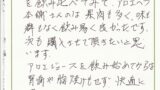 を飲み比べてみて、アロエベラ
本舗さんのは果肉も多く味も
癖もなく飲み易く良かったです。
次も購入させて頂きたいと思
います。
アロエジュースを飲み始めてから
胃痛や胸焼けもせず快適に